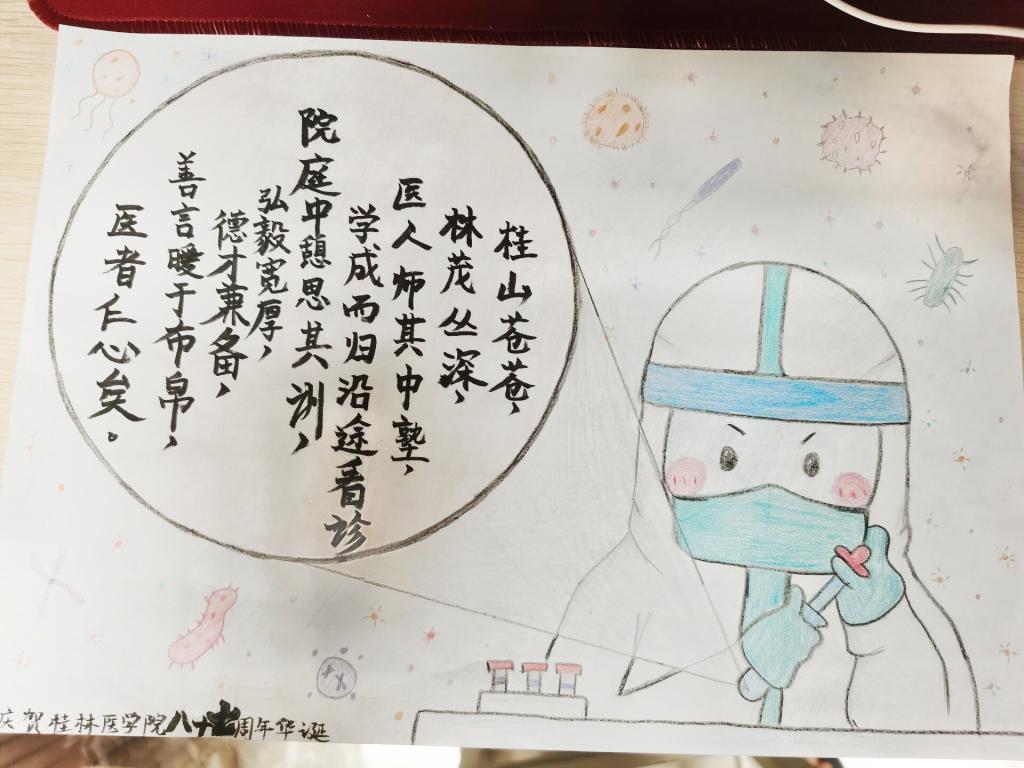 桂山苍苍，
林茂丛深，
医人师其中塾，
学成而归沿途看诊
院庭中憩思其训，
弘毅宽厚，
德才兼备，
善言暖于布帛，
医者仁心矣。
庆贺桂林医学院八十周年华诞